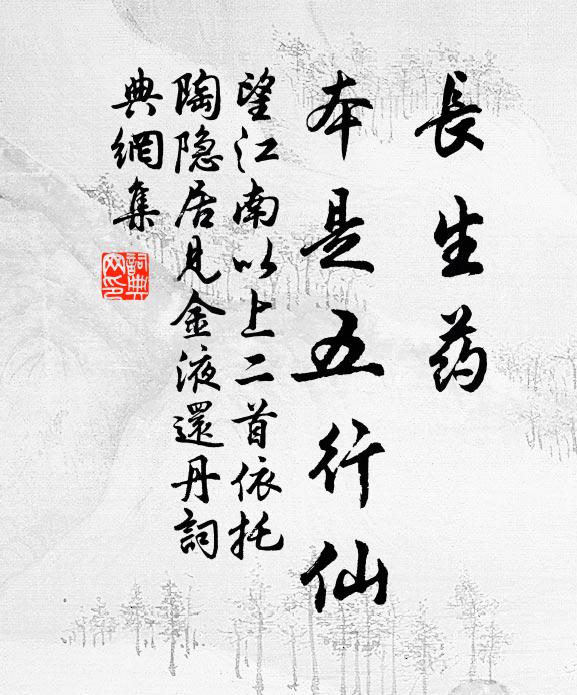 長生药
本是五行仙
望江南以上二首依托
陶隐居見金液還丹詞
典網集
詞典
网印